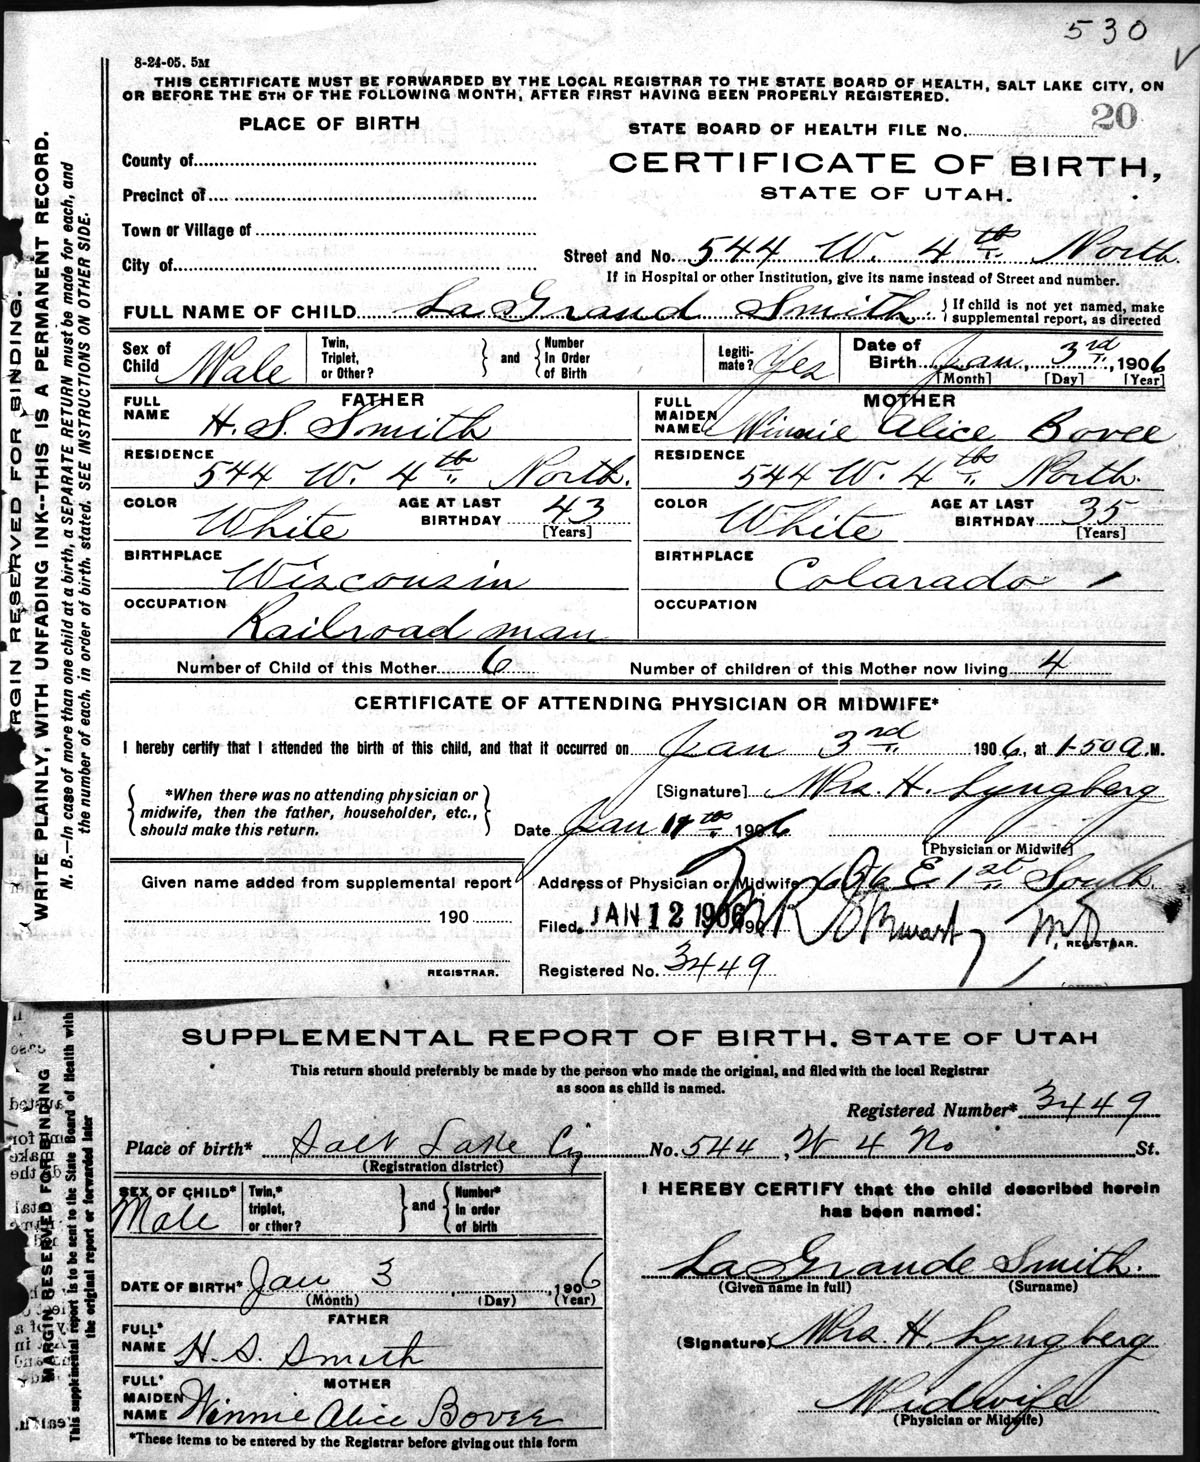 530
8-24-05. 5M
THIS CERTIFICATE MUST BE FORWARDED BY THE LOCAL REGISTRAR TO THE STATE BOARD OF HEALTH, SALT LAKE CITY, ON
OR BEFORE THE 5TH OF THE FOLLOWING MONTH, AFTER FIRST HAVING BEEN PROPERLY REGISTERED.
PLACE OF BIRTH
STATE BOARD OF HEALTH FILE No. 20
County of
CERTIFICATE OF BIRTH,
Precinct of
STATE OF UTAH.
Town or Village of
City of
Street and No. 544 W. 4th North.
If in Hospital or other Institution, give its name instead of Street and number.
FULL NAME OF CHILD La Grand Smith. { If child is not yet named, make
supplemental report, as directed
Sex of Child Male Twin, Triplet, or Other? } and { Number In Order of Birth Legiti-mate? Yes Date of Birth Jan, 3rd, 1906
[Month] [Day] [Year]
FATHER MOTHER
FULL NAME H. S. Smith FULL MAIDEN NAME Winnie Alice Bovee
RESIDENCE 544 W. 4th North. RESIDENCE 544 W. 4th North.
COLOR White AGE AT LAST BIRTHDAY 43 [Years] COLOR White AGE AT LAST BIRTHDAY 35 [Years]
BIRTHPLACE Wisconsin BIRTHPLACE Colarado
OCCUPATION Railroad man OCCUPATION
Number of Child of this Mother 6 Number of children of this Mother now living 4
CERTIFICATE OF ATTENDING PHYSICIAN OR MIDWIFE*
I hereby certify that I attended the birth of this child, and that it occurred on Jan 3rd 1906, at 1-50 A.M.
*When there was no attending physician or
midwife, then the father, householder, etc.,
should make this return.
[Signature] Mrs. H. Lyngberg
Date Jan 1906
[Physician or Midwife]
Given name added from supplemental report
190
REGISTRAR.
Address of Physician or Midwife E. 1st South.
Filed. JAN 12 1906 190 Stewart M.D. REGISTRAR.
Registered No. 3449
MARGIN RESERVED FOR BINDING.
WRITE PLAINLY, WITH UNFADING INK--THIS IS A PERMANENT RECORD.
N. B.—In case of more than one child at a birth, a SEPARATE RETURN must be made for each, and
the number of each, in order of birth, stated. SEE INSTRUCTIONS ON OTHER SIDE.
SUPPLEMENTAL REPORT OF BIRTH. STATE OF UTAH
This return should preferably be made by the person who made the original, and filed with the local Registrar
as soon as child is named.
Registered Number* 3449
Place of birth* Salt Lake Cy No. 544, W 4 No St.
(Registration district)
SEX OF CHILD* Male Twin,* triplet, or other? } and { Number* In order of birth
DATE OF BIRTH* Jan 3, 1906
(Month) (Day) (Year)
FATHER
FULL* NAME H. S. Smith
MOTHER
FULL* MAIDEN NAME Winnie Alice Bovee
*These items to be entered by the Registrar before giving out this form
I HEREBY CERTIFY that the child described herein
has been named:
La Grande Smith.
(Given name in full) (Surname)
(Signature) Mrs. H. Lyngberg
Midwife
(Physician or Midwife)
MARGIN RESERVED FOR BINDING
This supplemental report is to be sent to the State Board of Health with
the original report or forwarded later